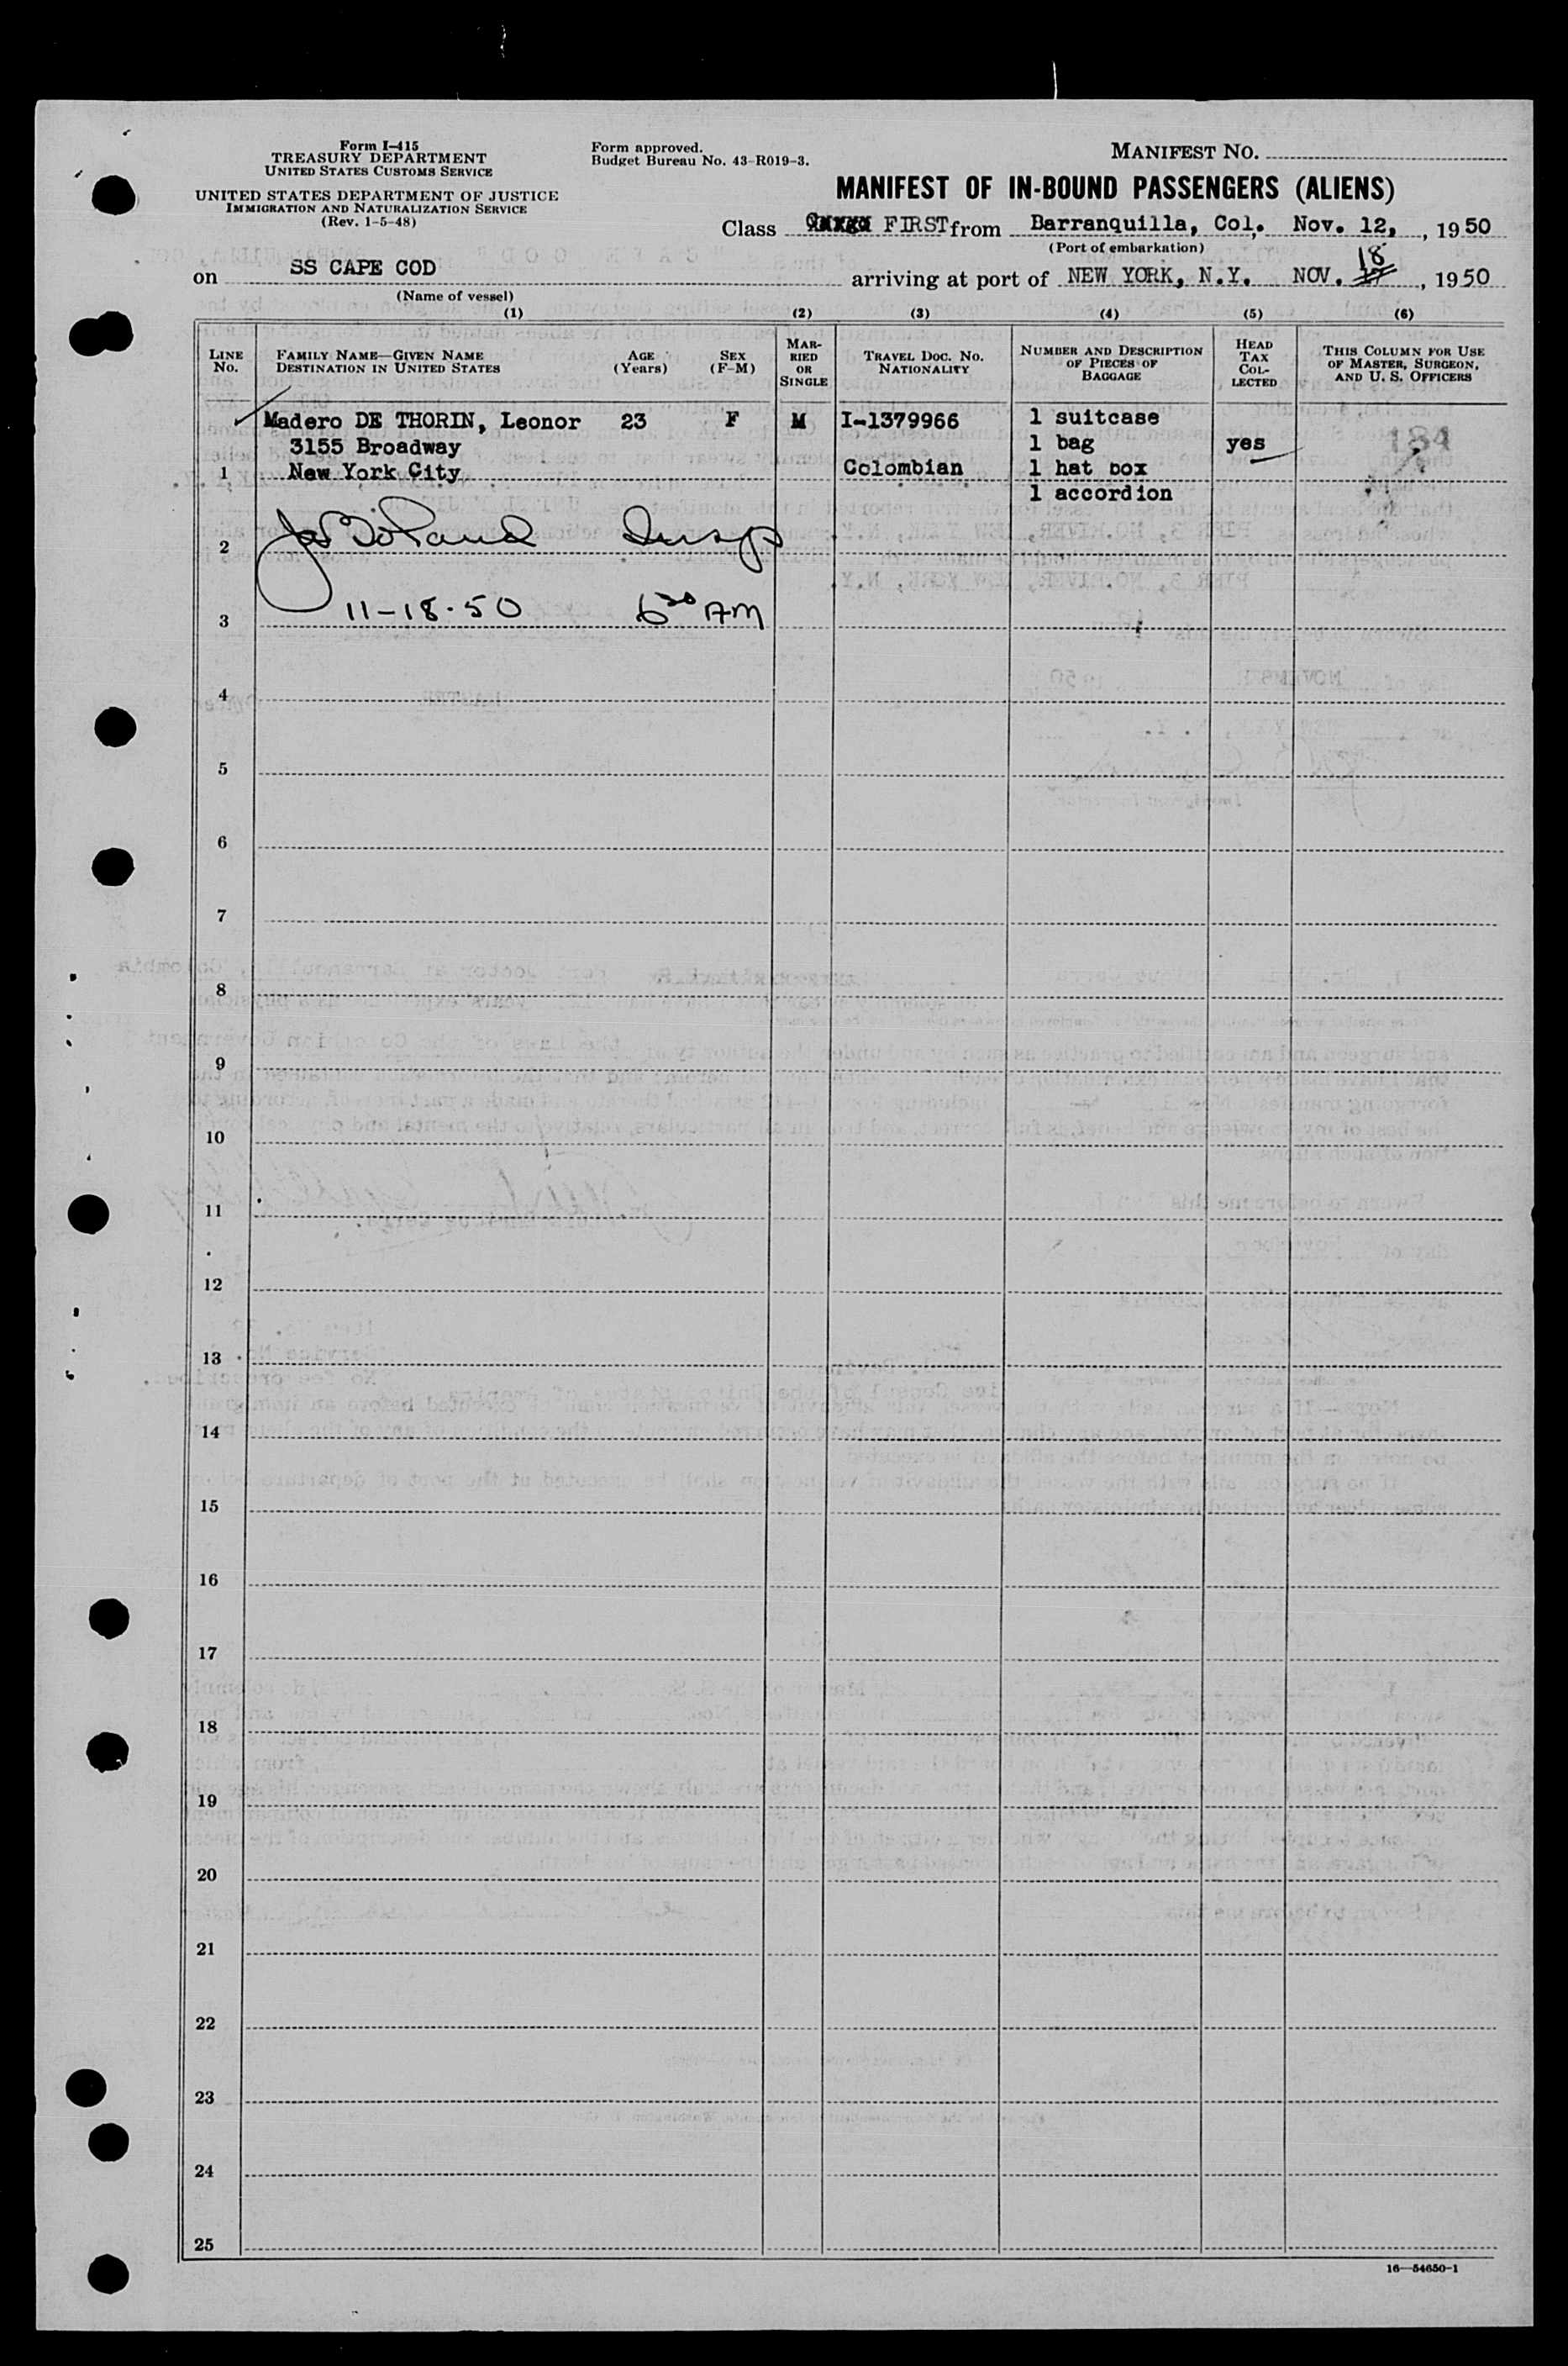 Form I-415
TREASURY DEPARTMENT
UNITED STATES CUSTOMS SERVICE
UNITED STATES DEPARTMENT OF JUSTICE
IMMIGRATION AND NATURALIZATION SERVICE
(Rev. 1-5-48)
Form approved.
Budget Bureau No. 43-R019-3.
MANIFEST NO.
MANIFEST OF IN-BOUND PASSENGERS (ALIENS)
Class FIRST from Barranquilla, Col. Nov. 12, , 1950
(Port of embarkation)
on SS CAPE COD arriving at port of NEW YORK, N.Y. NOV. 18 , 1950
(Name of vessel)
(1) (2) (3) (4) (5) (6)
LINE No.
FAMILY NAME—GIVEN NAME
DESTINATION IN UNITED STATES
AGE (Years)
SEX (F-M)
MARRIED OR SINGLE
TRAVEL DOC. NO.
NATIONALITY
NUMBER AND DESCRIPTION
OF PIECES OF
BAGGAGE
HEAD TAX COLLECTED
THIS COLUMN FOR USE
OF MASTER, SURGEON,
AND U. S. OFFICERS
Madero DE THORIN, Leonor 23 F M I-1379966 1 suitcase
3155 Broadway 1 bag yes 184
1 New York City Colombian 1 hat box
1 accordion
2 Insp
3 11-18-50 6 30 AM
4
5
6
7
8
9
10
11
12
13
14
15
16
17
18
19
20
21
22
23
24
25
16—54650-1